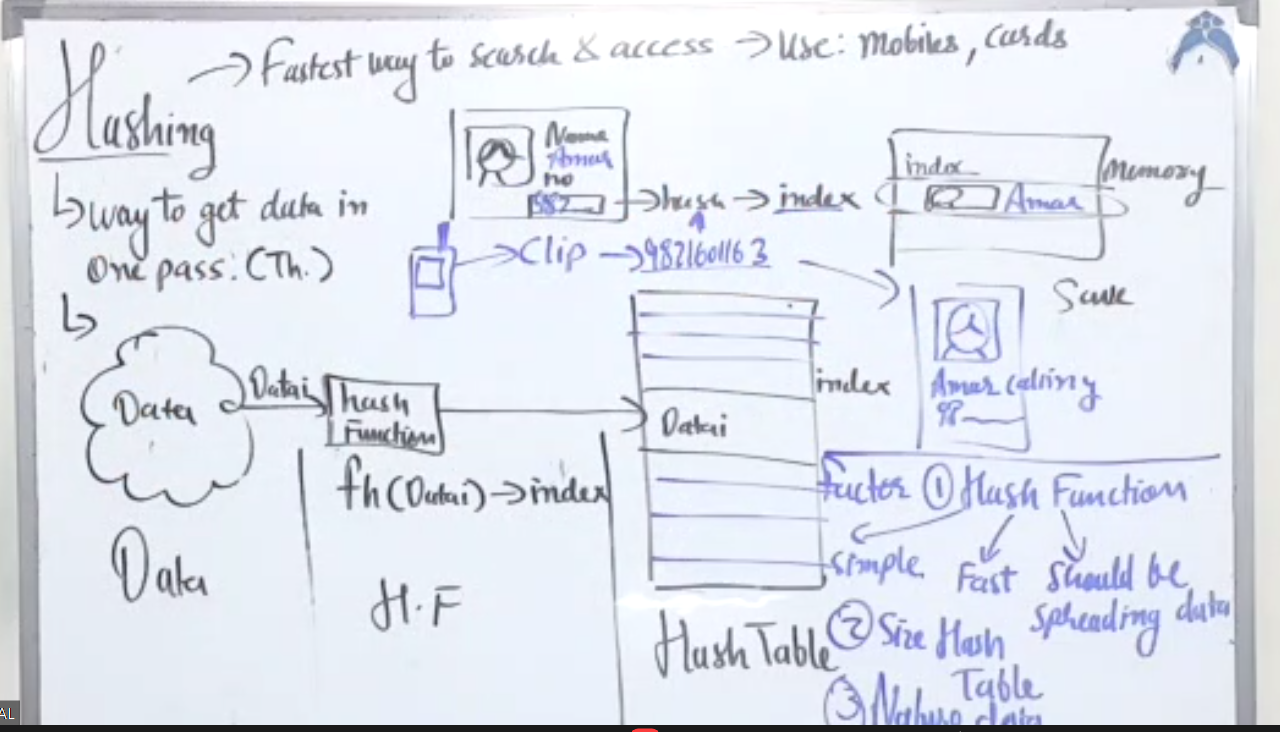 Hashing
→ Fastest way to search & access → Use: Mobiles, cards
↳ way to get data in
one pass: (Th.)
Name
Amar
no
982
→ hash → index
index
Amar
Memory
Clip → 9821601163
Save
Amar calling
98
Data
Datai
hash
Function
Datai
index
fh(Datai) → index
Data
H.F
Hash Table
factor ① Hash Function
simple
Fast
should be
spreading data
② Size Hash
Table
③ Nature data
AL